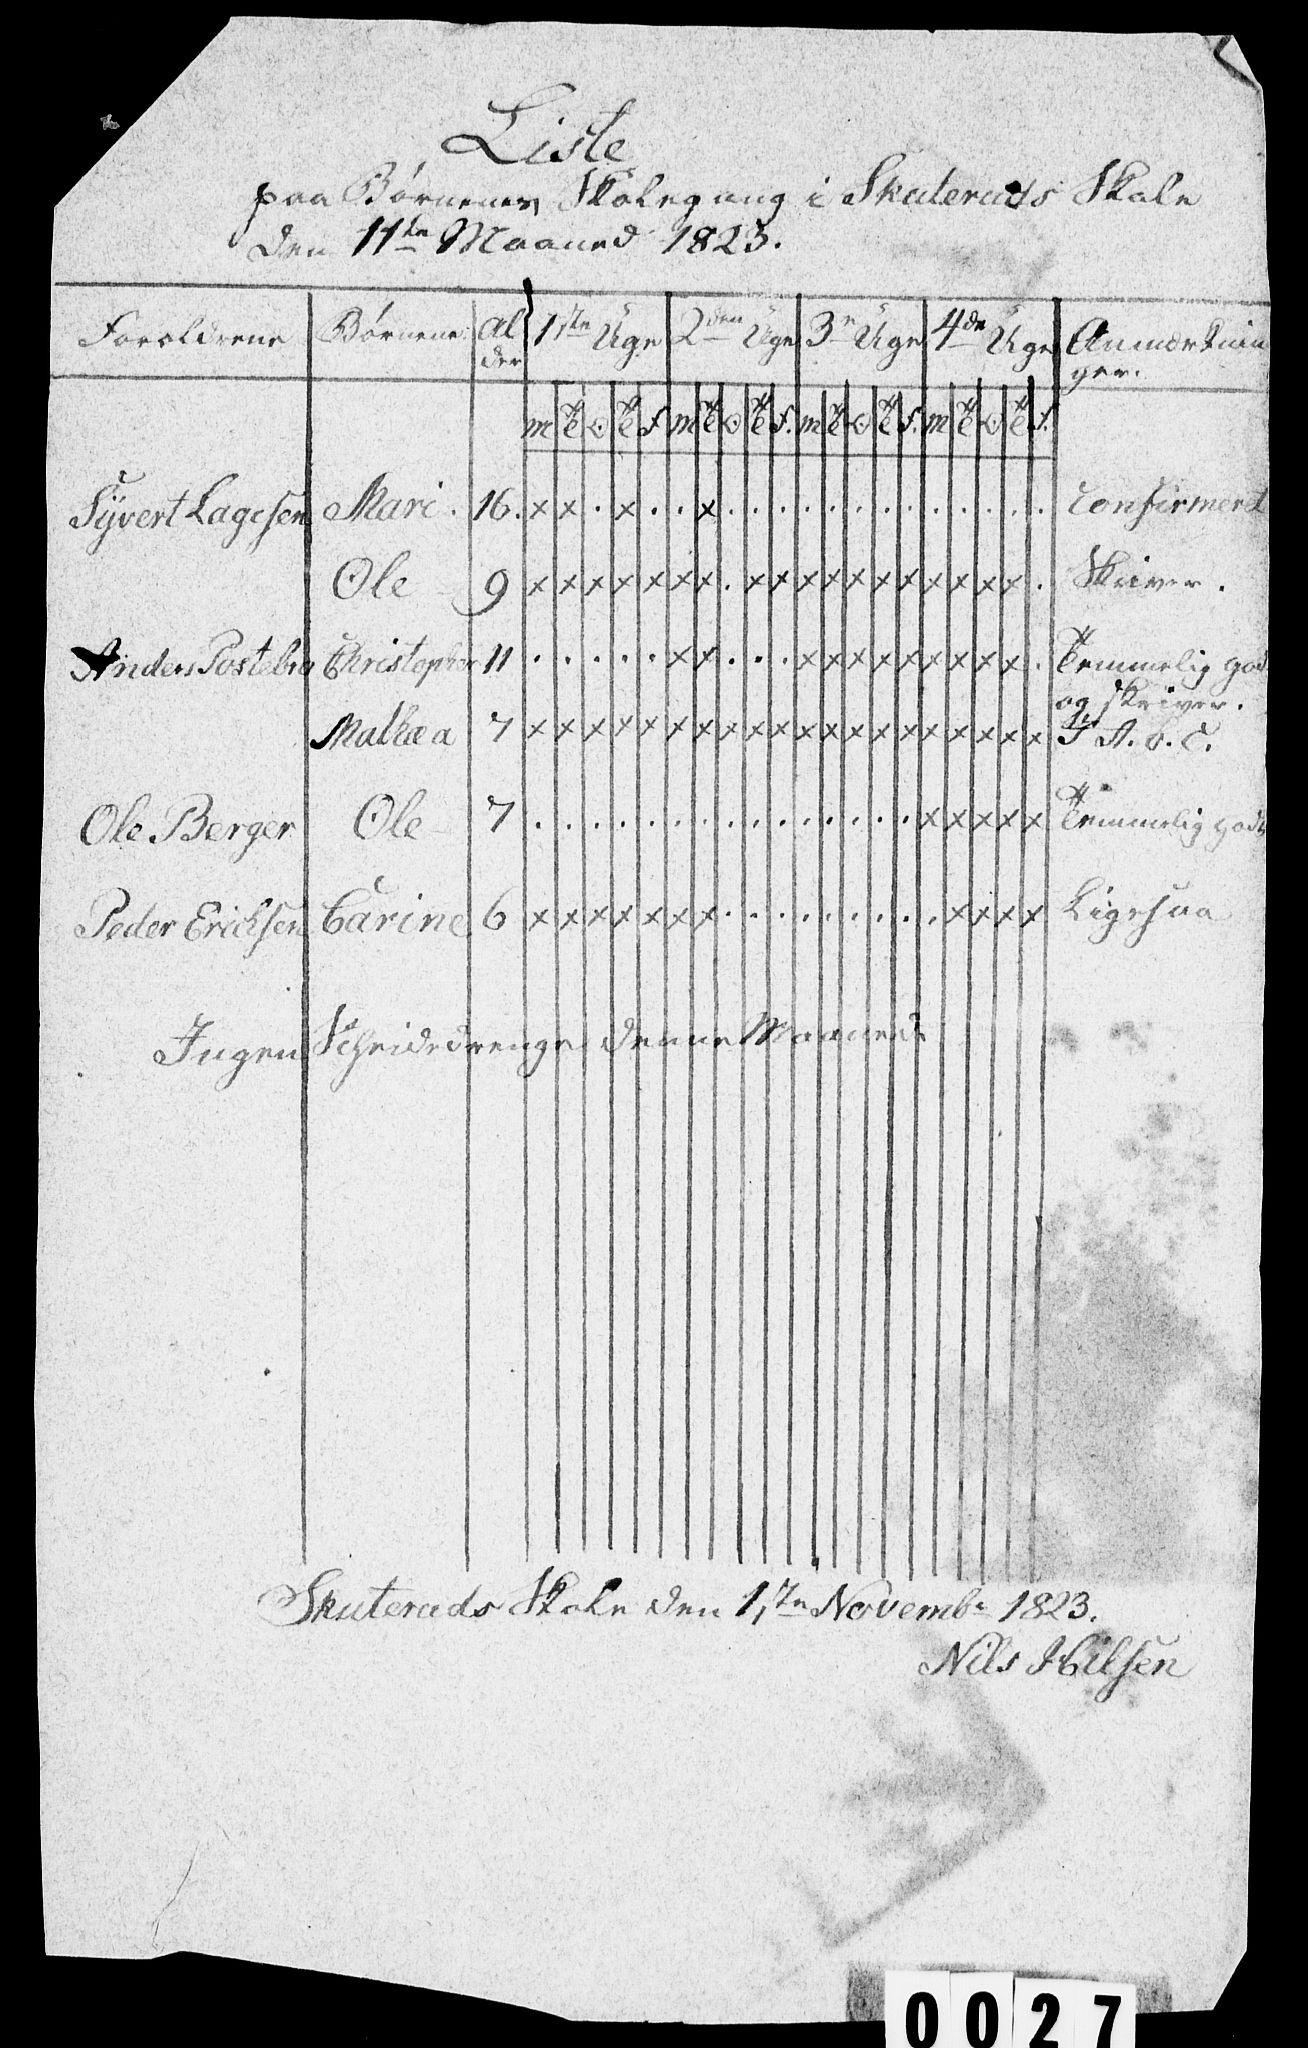 Liste
paa Børnenes Skolegang i Skuteruds Skole
den 11te Maaned 1823.
Forældrene Børnene Al der 1ste Uge 2den Uge 3e Uge 4de Uge Anmærkninger.
m T O T F m T O T F. m T O T F. m T O T F.
Syvert Lagesen Mari. 16. x x . x . . x . . . . . . . . . . . . . Confirmert
Ole 9 x x x x x x x . x x x x x x x x x x x . Skriver.
Anders Postebra Christopher 11 . . . . . x x . . . x x x x x x x x x . Temmelig god
og skriver.
Mathea 7 x x x x x x x x x x x x x x x x x x x x I A. b. c.
Ole Berger Ole 7 . . . . . . . . . . . . . . . x x x x x Temmelig godt
Peder Erichsen Carine 6 x x x x x x x . . . . . . . . . x x x x Ligesaa
Ingen Scheidedrenge denne Maaned
Skuteruds Skole den 1ste Novembr 1823.
Nils
0027